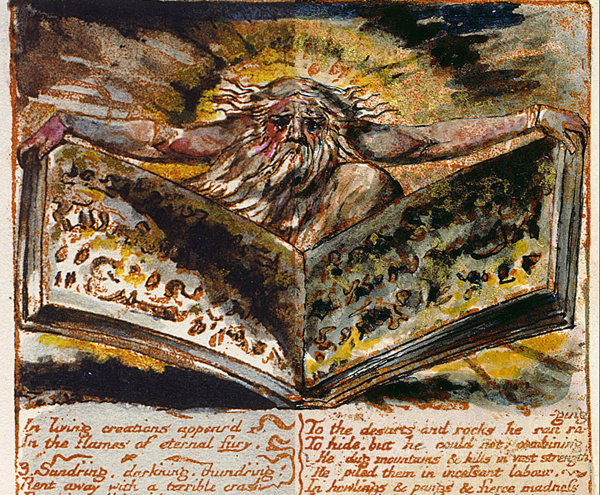 In living creations appear'd
In the flames of eternal fury.
3. Sundring, darkning, thundring,
Rent away with a terrible crash
-ging
To the desarts and rocks he ran ra-
To hide, but he could not; combining
He dug mountains & hills in vast strength
He piled them in incessant labour,
In howlings & pangs & fierce madness